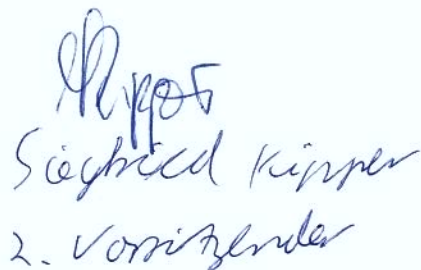 Siegfried Kipper
2. Vorsitzender